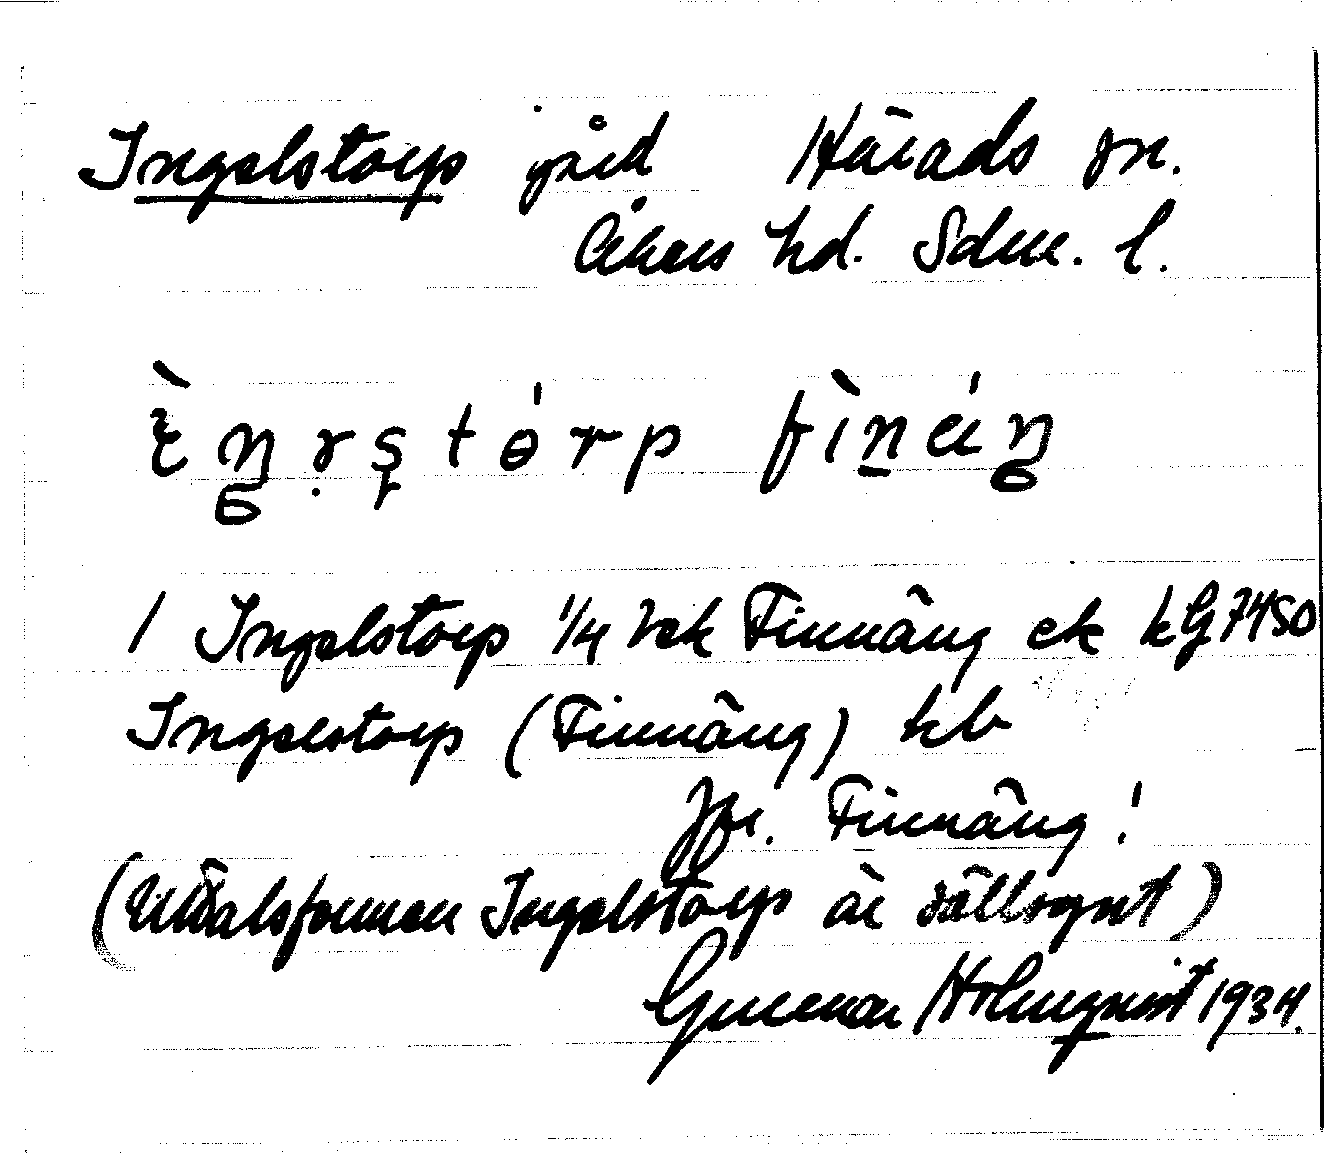 Ingelstorp gård Härads sn.
Åkers hd. Sdm. l.
fìnäŋ
1 Ingelstorp 1/4 Finnäng ek kG 7450
Ingelstorp (Finnäng) kb
Jfr. Finnäng!
(Uttalsformen Ingelstorp är sällsynt)
Gunnar Holmqvist 1934.